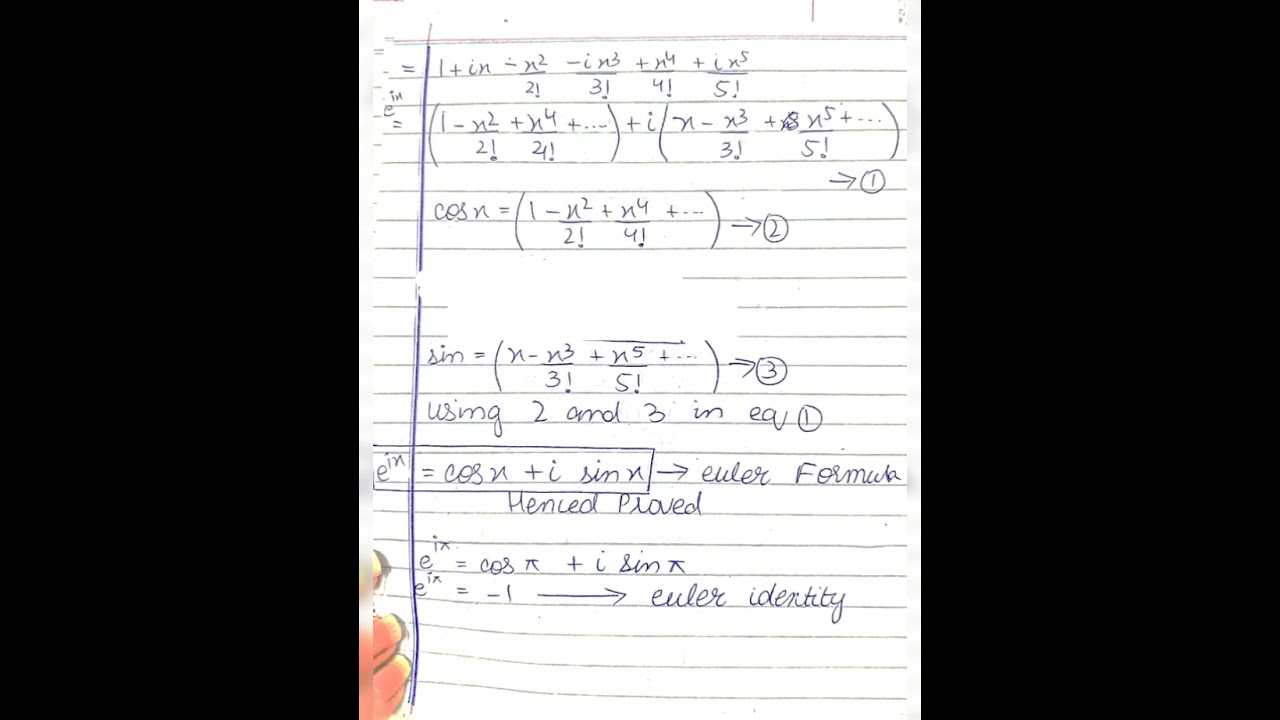 = 1 + ix - x²/2! - ix³/3! + x⁴/4! + ix⁵/5!
e^ix = (1 - x²/2! + x⁴/4! + ....) + i(x - x³/3! + x⁵/5! + ...)
→ ①
cos x = (1 - x²/2! + x⁴/4! + ...) → ②
sin = (x - x³/3! + x⁵/5! + ...) → ③
using 2 and 3 in eq ①
e^ix = cos x + i sin x → euler Formula
Henced Proved
e^iπ = cos π + i sin π
e^iπ = -1 → euler identity